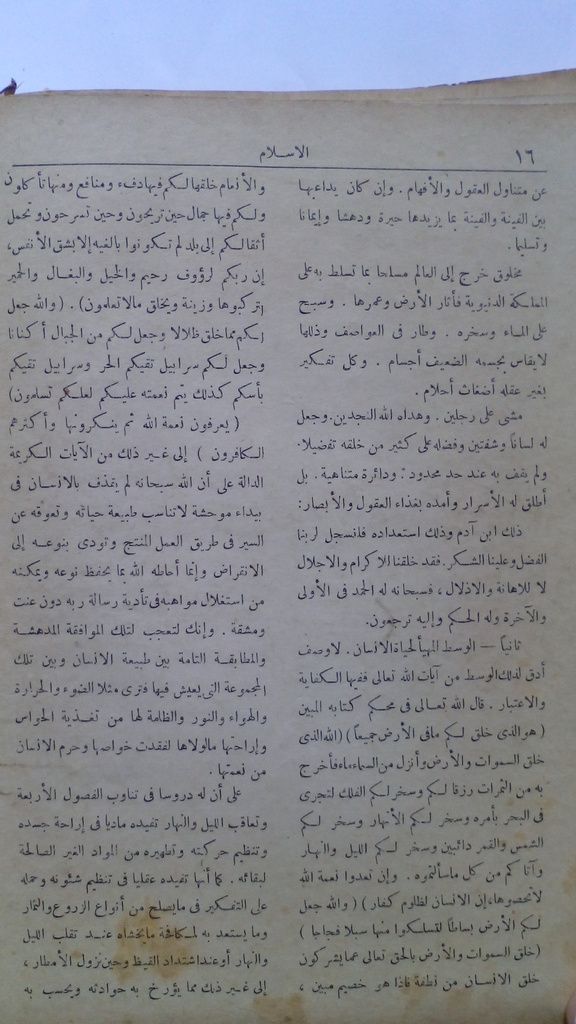 ١٦
الاسلام
عن متناول العقول والأفهام . وإن كان يداعبها
بين الفينة والفينة بما يزيدها حيرة ودهشا وإيمانا
وتسليما .
مخلوق خرج إلى العالم مسلحا بما تسلط به على
المملكة الدنيوية فأثار الأرض وعمرها . وسبح
على الماء وسخره . وطار فى العواصف وذللها
لا يقاس بجسمه الضعيف أجسام . وكل تفكير
بغير عقله أضغاث أحلام .
مشى على رجلين . وهداه الله النجدين . وجعل
له لسانا وشفتين وفضله على كثير من خلقه تفضيلا .
ولم يقف به عند حد محدود ؛ ودائرة متناهية . بل
أطلق له الأسرار وأمده بغذاء العقول والأبصار :
ذلك ابن آدم وذلك استعداده فلنسجل لربنا
الفضل وعلينا الشكر . فقد خلقنا للاكرام والاجلال
لا للاهانة والاذلال ، فسبحانه له الحمد فى الأولى
والآخرة وله الحكم وإليه ترجعون .
ثانياً — الوسط المهيأ لحياة الانسان . لا وصف
أدق لذلك الوسط من آيات الله تعالى ففيها الكفاية
والاعتبار . قال الله تعالى فى محكم كتابه المبين
( هو الذى خلق لكم مافى الأرض جميعاً ) ( الله الذى
خلق السموات والأرض وأنزل من السماء ماء فأخرج
به من الثمرات رزقا لكم وسخر لكم الفلك لتجرى
فى البحر بأمره وسخر لكم الأنهار وسخر لكم
الشمس والقمر دائبين وسخر لكم الليل والنهار
وآتاكم من كل ماسألتموه . وإن تعدوا نعمة الله
لا تحصوها ، إن الانسان لظلوم كفار ) ( والله جعل
لكم الأرض بساطا لتسلكوا منها سبلا فجاجا )
( خلق السموات والأرض بالحق تعالى عما يشركون
خلق الانسان من نطفة فاذا هو خصيم مبين ،
والأنعام خلقها لكم فيها دفء ومنافع ومنها تأكلون
ولكم فيها جمال حين تريحون وحين تسرحون وتحمل
أثقالكم إلى بلد لم تكونوا بالغيه إلا بشق الأنفس ،
إن ربكم لرؤوف رحيم والخيل والبغال والحمير
لتركبوها وزينة ويخلق مالا تعلمون ) . ( والله جعل
لكم مما خلق ظلالا وجعل لكم من الجبال أكنانا
وجعل لكم سرابيل تقيكم الحر وسرابيل تقيكم
بأسكم كذلك يتم نعمته عليكم لعلكم تسلمون )
( يعرفون نعمة الله ثم ينكرونها وأكثرهم
الكافرون ) إلى غير ذلك من الآيات الكريمة
الدالة على أن الله سبحانه لم يقذف بالانسان فى
بيداء موحشة لا تناسب طبيعة حياته وتعوقه عن
السير فى طريق العمل المنتج وتودى بنوعه إلى
الانقراض وإنما أحاطه الله بما يحفظ نوعه ويمكنه
من استغلال مواهبه فى تأدية رسالة ربه دون عنت
ومشقة . وإنك لتعجب لتلك الموافقة المدهشة
والمطابقة التامة بين طبيعة الانسان وبين تلك
المجموعة التى يعيش فيها فترى مثلا الضوء والحرارة
والهواء والنور والظلمة لها من تغذية الحواس
وإراحتها مالولاها لفقدت خواصها وحرم الانسان
من نعمتها .
على أن له دروسا فى تناوب الفصول الأربعة
وتعاقب الليل والنهار تفيده ماديا فى إراحة جسده
وتنظيم حركته وتطهيره من المواد الغير الصالحة
لبقائه . كما أنها تفيده عقليا فى تنظيم شئونه وحمله
على التفكير فى مايصلح من أنواع الزروع والثمار
وما يستعد به لمكافحة مايخشاه عند تقلب الليل
والنهار أو عند اشتداد القيظ وحين نزول الأمطار ،
إلى غير ذلك مما يؤرخ به حوادثه ويحسب به